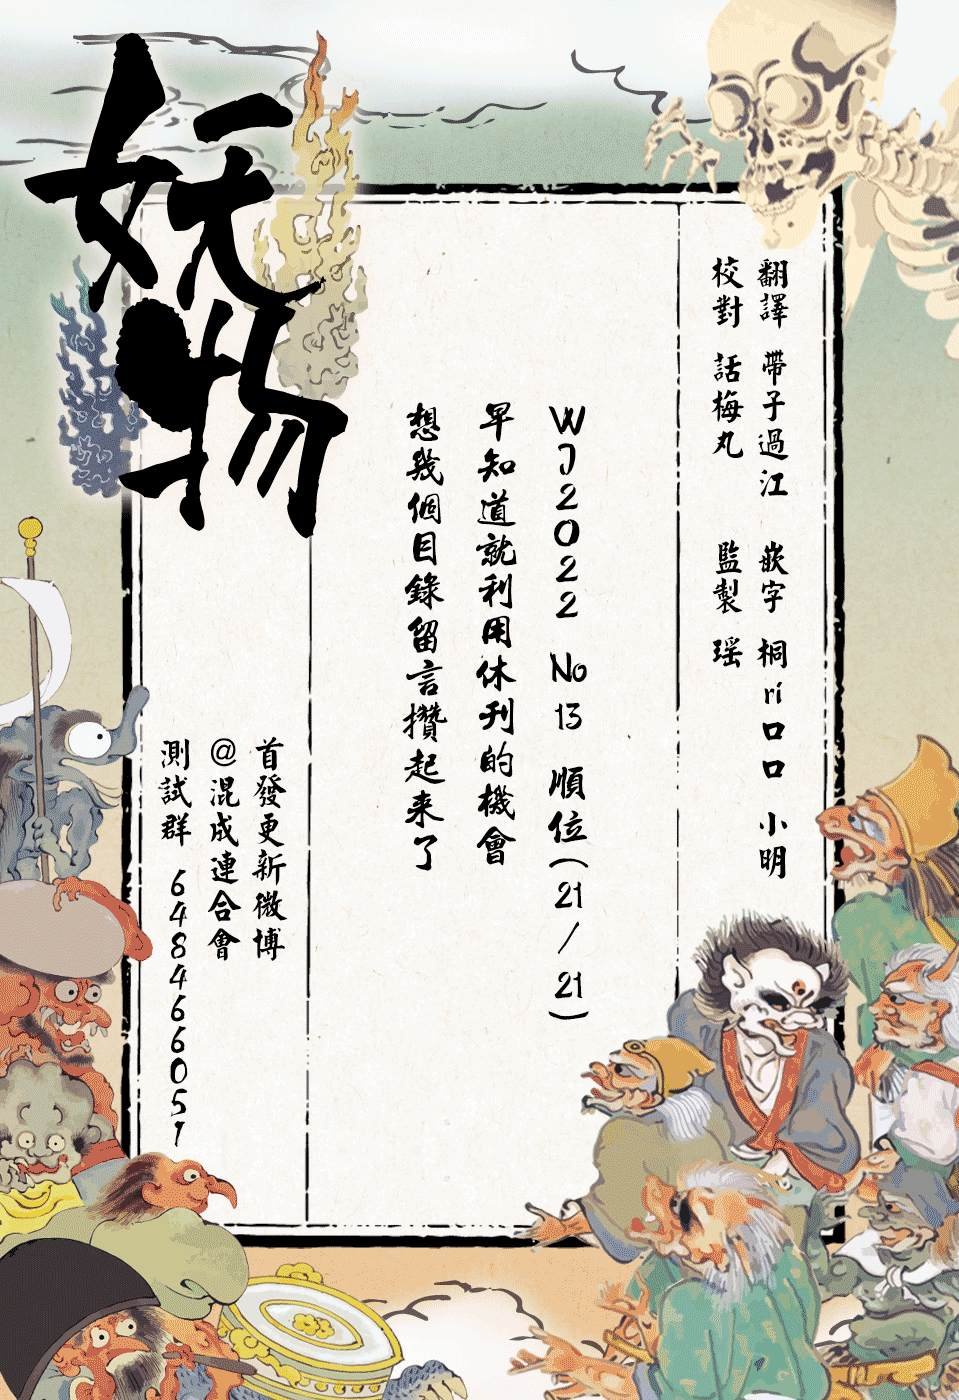 妖物
翻譯 帶子過江 嵌字 桐ri口口 小明
校對 話梅丸 監製 瑶
WJ2022 No 13 順位(21/21)
早知道就利用休刊的機會
想幾個目錄留言攢起来了
首發更新微博
@混成連合會
測試群 648466051